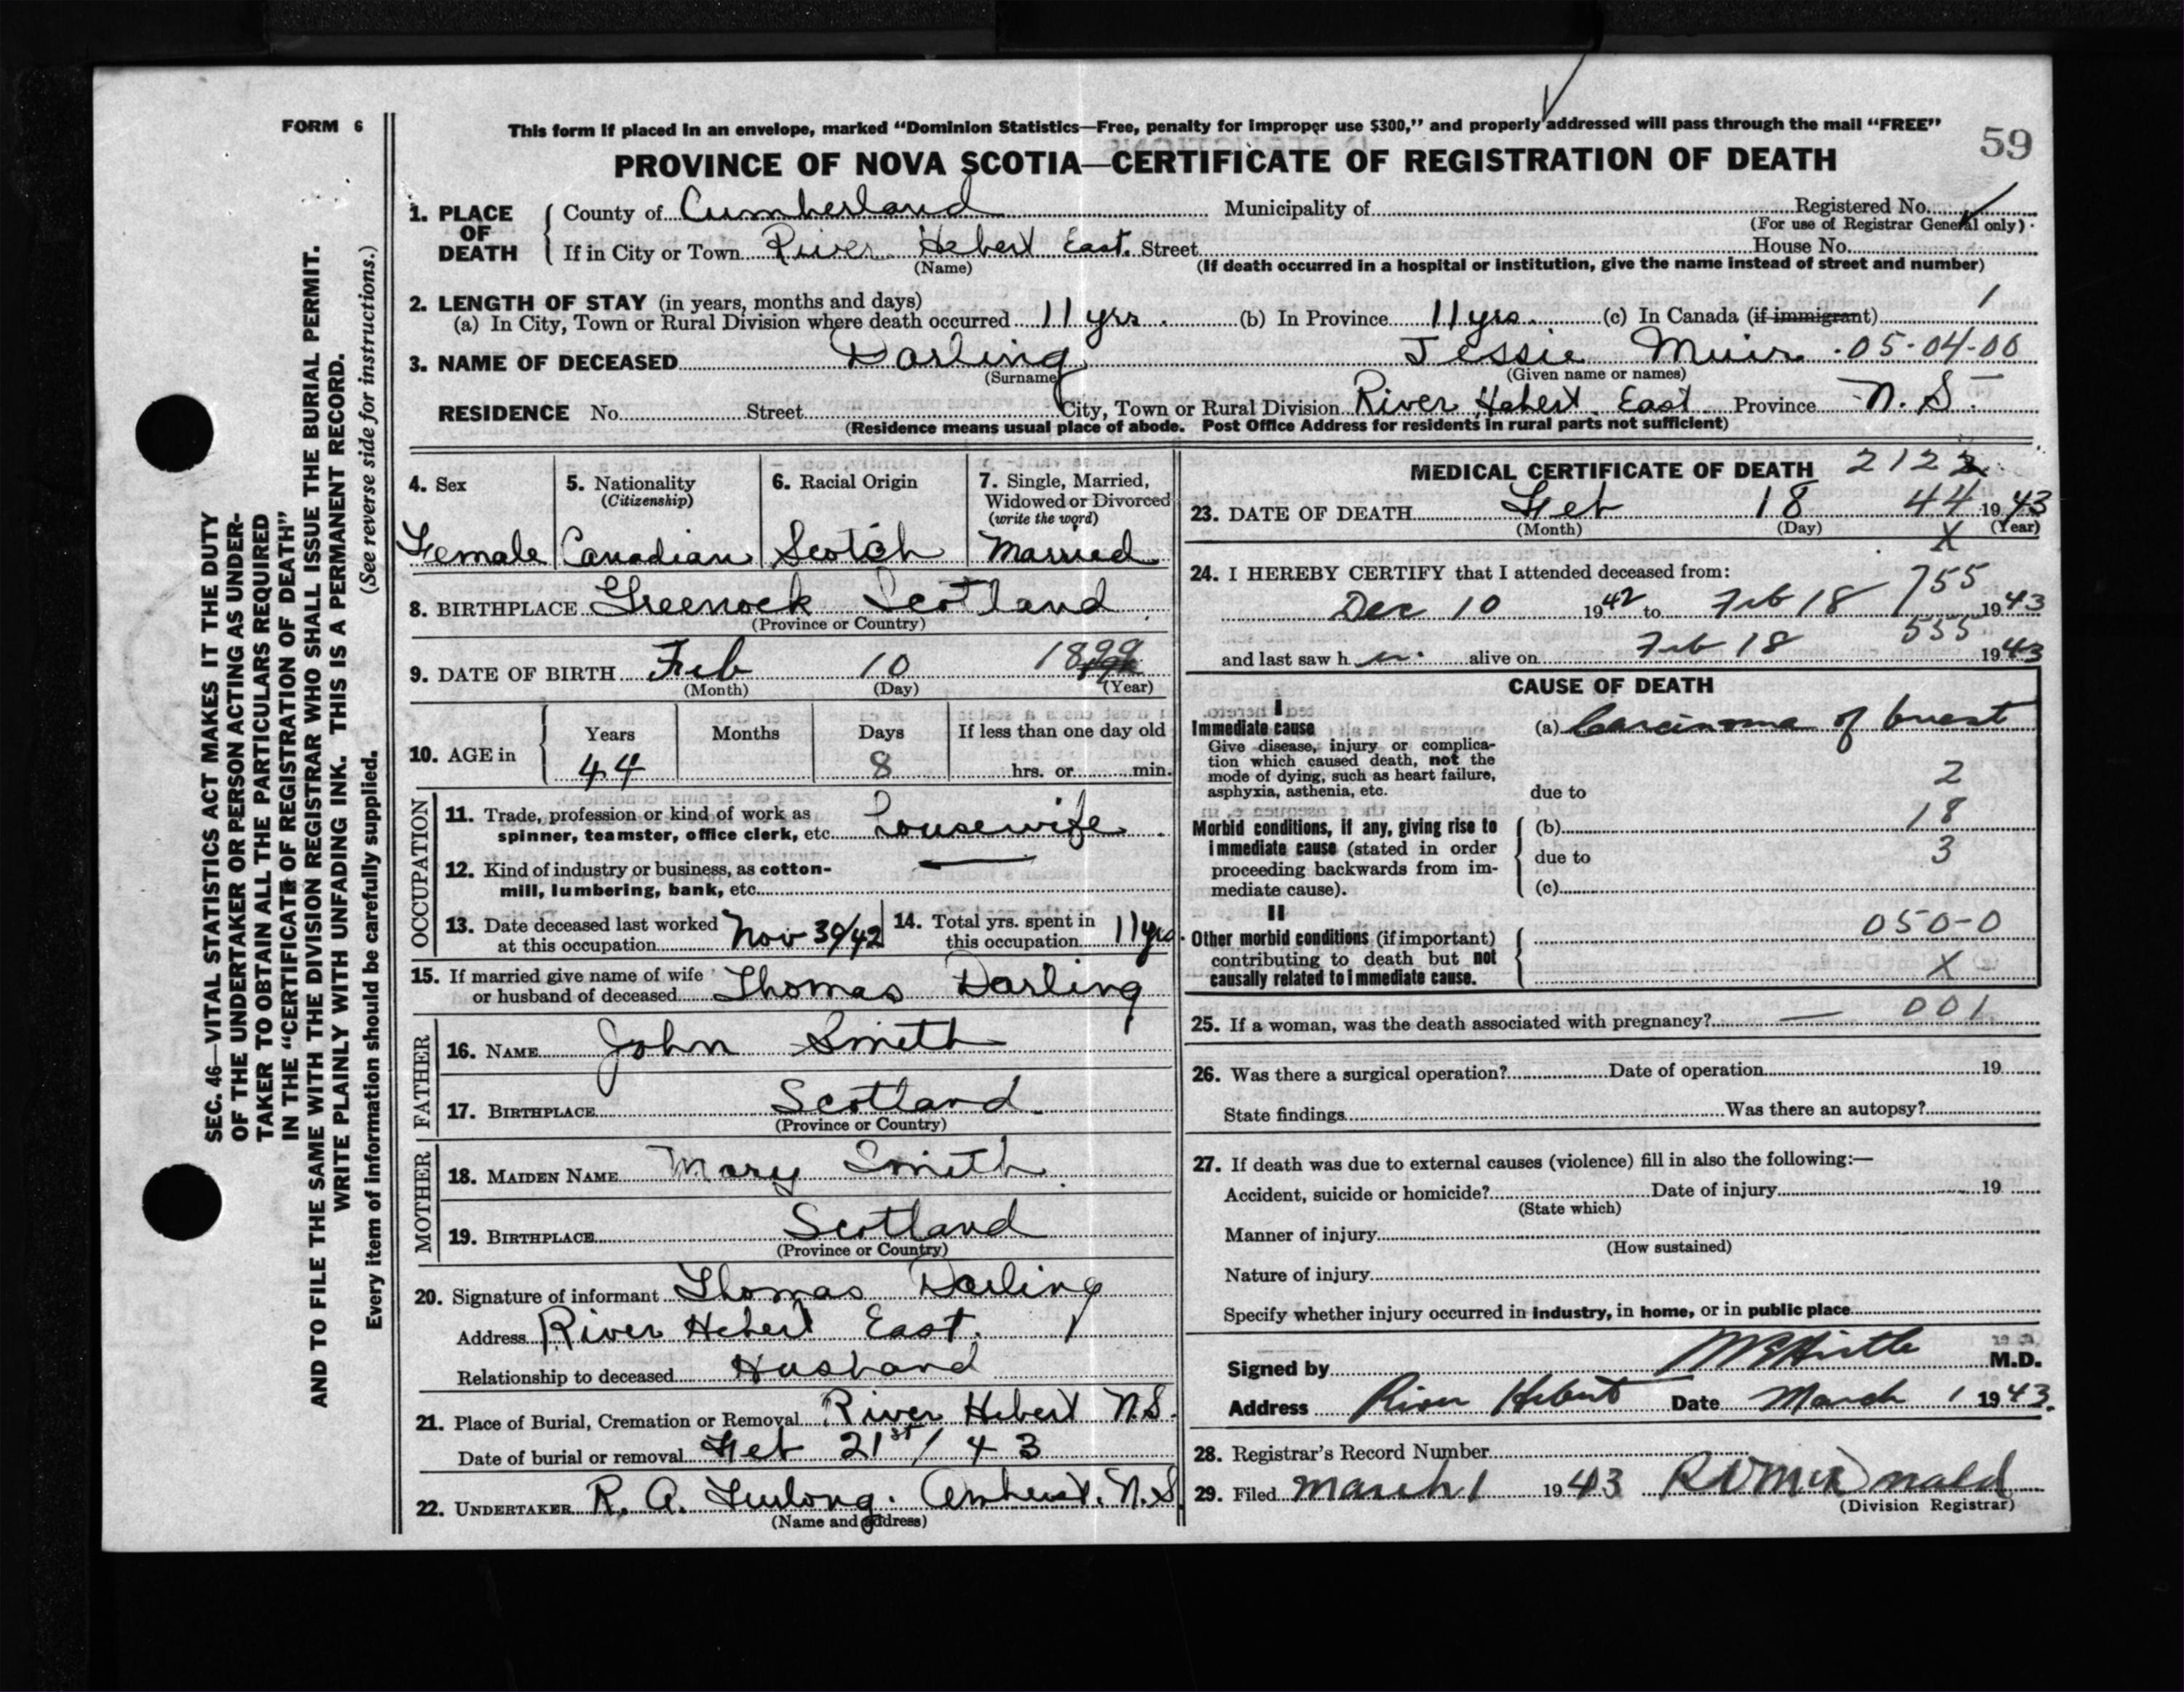 FORM 6
This form if placed in an envelope, marked "Dominion Statistics—Free, penalty for improper use $300," and properly addressed will pass through the mail "FREE"
59
PROVINCE OF NOVA SCOTIA—CERTIFICATE OF REGISTRATION OF DEATH
SEC. 46—VITAL STATISTICS ACT MAKES IT THE DUTY
OF THE UNDERTAKER OR PERSON ACTING AS UNDER-
TAKER TO OBTAIN ALL THE PARTICULARS REQUIRED
IN THE "CERTIFICATE OF REGISTRATION OF DEATH"
AND TO FILE THE SAME WITH THE DIVISION REGISTRAR WHO SHALL ISSUE THE BURIAL PERMIT.
WRITE PLAINLY WITH UNFADING INK. THIS IS A PERMANENT RECORD.
Every item of information should be carefully supplied. (See reverse side for instructions.)
1. PLACE OF DEATH
County of Cumberland Municipality of Registered No.
(For use of Registrar General only)
If in City or Town River Hebert East. Street House No.
(Name) (If death occurred in a hospital or institution, give the name instead of street and number)
2. LENGTH OF STAY (in years, months and days)
(a) In City, Town or Rural Division where death occurred 11 yrs. (b) In Province 11 yrs. (c) In Canada (if immigrant) 1
3. NAME OF DECEASED Darling Jessie Muir 05-04-06
(Surname) (Given name or names)
RESIDENCE No. Street City, Town or Rural Division River Hebert East Province N. S.
(Residence means usual place of abode. Post Office Address for residents in rural parts not sufficient)
4. Sex
Female
5. Nationality
(Citizenship)
Canadian
6. Racial Origin
Scotch
7. Single, Married,
Widowed or Divorced
(write the word)
Married
8. BIRTHPLACE Greenock Scotland
(Province or Country)
9. DATE OF BIRTH Feb 10 1899
(Month) (Day) (Year)
10. AGE in
Years Months Days If less than one day old
44 8 hrs. or min.
OCCUPATION
11. Trade, profession or kind of work as
spinner, teamster, office clerk, etc. Housewife
12. Kind of industry or business, as cotton-
mill, lumbering, bank, etc. —
13. Date deceased last worked
at this occupation Nov 30/42
14. Total yrs. spent in
this occupation 11 yrs.
15. If married give name of wife
or husband of deceased Thomas Darling
FATHER
16. NAME John Smith
17. BIRTHPLACE Scotland
(Province or Country)
MOTHER
18. MAIDEN NAME Mary Smith
19. BIRTHPLACE Scotland
(Province or Country)
20. Signature of informant Thomas Darling
Address River Hebert East.
Relationship to deceased Husband
21. Place of Burial, Cremation or Removal River Hebert N.S.
Date of burial or removal Feb 21st/43
22. UNDERTAKER R. A. Furlong. Amherst. N.S.
(Name and address)
MEDICAL CERTIFICATE OF DEATH 2122
23. DATE OF DEATH Feb 18 44 1943
(Month) (Day) (Year)
X
24. I HEREBY CERTIFY that I attended deceased from:
755
Dec 10 1942 to Feb 18 1943
555
and last saw h er alive on Feb 18 1943
CAUSE OF DEATH
I
Immediate cause (a) Carcinoma of breast
Give disease, injury or complica-
tion which caused death, not the
mode of dying, such as heart failure,
asphyxia, asthenia, etc.
due to 2
Morbid conditions, if any, giving rise to
immediate cause (stated in order
proceeding backwards from im-
mediate cause).
(b) 18
due to 3
(c)
II
Other morbid conditions (if important)
contributing to death but not
causally related to immediate cause.
050-0
X
25. If a woman, was the death associated with pregnancy? — 001
26. Was there a surgical operation? Date of operation 19
State findings Was there an autopsy?
27. If death was due to external causes (violence) fill in also the following:—
Accident, suicide or homicide? Date of injury 19
(State which)
Manner of injury
(How sustained)
Nature of injury
Specify whether injury occurred in industry, in home, or in public place
Signed by M.D.
Address River Hebert Date March 1 1943.
28. Registrar's Record Number
29. Filed March 1 1943
(Division Registrar)